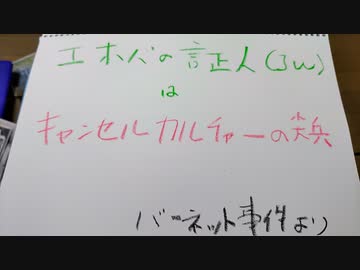 エホバの証人(JW)
は
キャンセルカルチャーの尖兵
バーネット事件より